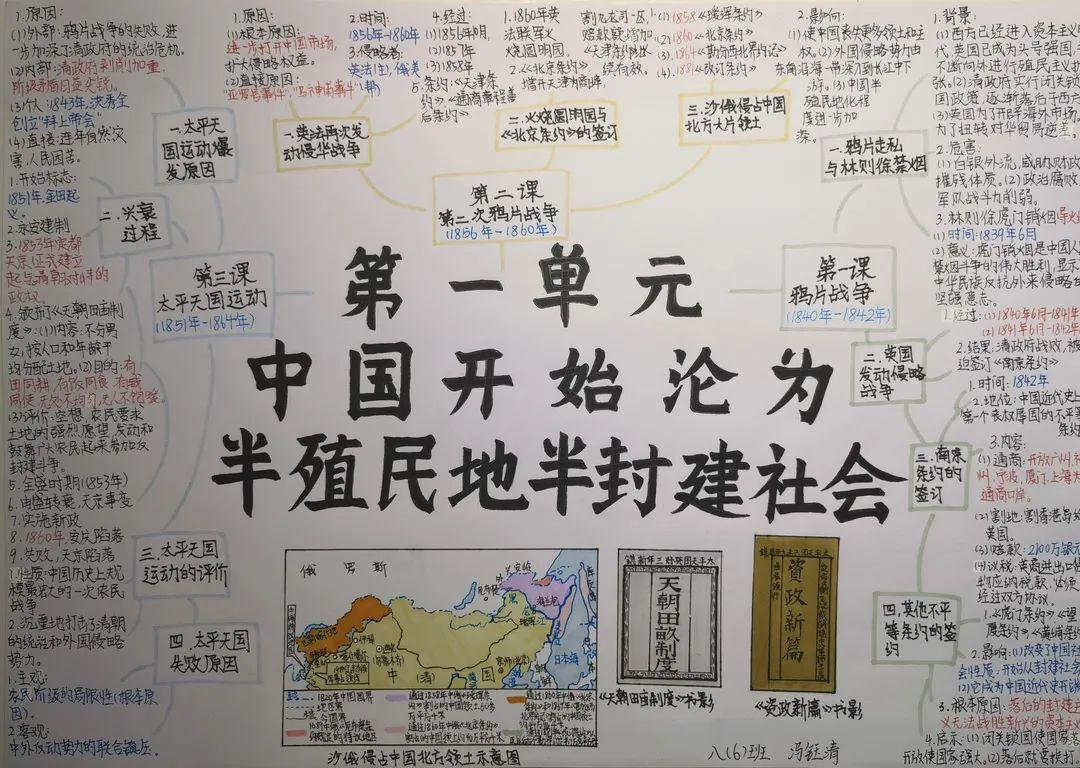 第一单元
中国开始沦为
半殖民地半封建社会
第一课
鸦片战争
(1840年-1842年)
一.鸦片走私
与林则徐禁烟
1.背景:
(1)西方已经进入资本主义
代,英国已成为头号强国,
不断向外进行殖民主义扩
张。(2)清政府实行闭关锁
国政策,逐渐落后于西方
(3)英国为了开辟海外市场,
为了扭转对华贸易逆差。
2.危害:
(1)白银外流,威胁财政
摧残体质。(2)政治腐败,
军队战斗力削弱。
3.林则徐虎门销烟
(1)时间:1839年6月
(2)意义:虎门销烟是中国人
禁烟斗争的伟大胜利,显示
中华民族反抗外来侵略
坚强意志。
二.英国
发动侵略
战争
1.经过:(1)1840年6月-1841年
(2)1841年6月-1842年
2.结果:清政府战败,被
迫签订《南京条约》
三.南京
条约的
签订
1.时间:1842年
2.地位:中国近代史上
第一个丧权辱国的不平等
条约
3.内容:
(1)通商:开放广州、
州、宁波、厦门、上海
通商口岸。
(2)割地:割香港岛给
英国。
(3)赔款:2100万银元
(4)议税:英商进出口
纳税款,必须
经过双方协议。
四.其他不平
等条约的签
约
1.《虎门条约》《望
厦条约》《黄埔条约》
2.影响:(1)改变了中国社
会性质:开始从封建社会
(2)它成为中国近代史开端
3.根本原因:落后的封建主
义无法战胜新兴的资本主义
4.启示:(1)闭关锁国使国家落
开放使国家强大。(2)落后就要挨打。
第二课
第二次鸦片战争
(1856年-1860年)
一.英法再次发
动侵华战争
1.原因:
(1)根本原因:
进一步打开中国市场,
扩大侵略权益。
(2)直接原因:
"亚罗号事件"、"马神甫事件"
2.时间:
1856年-1860年
3.侵略者:
英法(主)、俄美
(帮)
4.经过:
(1)1856年10月,
(2)1857年
(3)1858年
条约:《天津条
约》《通商章程善
后条约》
二.火烧圆明园与
《北京条约》的签订
1.1860年英
法联军火
烧圆明园。
2.《北京条约》
增开天津为商埠,
割九龙司一区,
赔款数增加,
《天津条约》继
续有效。
三.沙俄侵占中国
北方大片领土
1.(1)1858《瑷珲条约》
(2)1860《北京条约》
(3)1864《勘分西北界约记》
(4)1881《改订条约》
2.影响:
(1)使中国丧失更多领土和主
权。(2)外国侵略势力由
东南沿海一带深入到长江中下
游。(3)中国半
殖民地化程
度进一步加
深。
第三课
太平天国运动
(1851年-1864年)
一.太平天
国运动爆
发原因
1.原因:
(1)外部:鸦片战争的失败,进
一步加深了清政府的统治危机。
(2)内部:清政府剥削加重,
阶级矛盾日益尖锐。
(3)个人:1843年,洪秀全
创立"拜上帝会"
(4)直接:连年自然灾
害,人民困苦。
二.兴衰
过程
1.开始标志:
1851年,金田起
义。
2.永安建制
3.1853年定都
天京(正式建立
起与清朝对峙的
政权。
4.颁布《天朝田亩制
度》:(1)内容:不分男
女,按人口和年龄平
均分配土地。(2)目的:有
田同耕,有饭同食,有衣
同使,无处不均匀,无人不饱暖。
(3)评价:空想、农民要求
土地的强烈愿望,发动和
鼓舞广大农民起来参加反
封建斗争。
5.全盛时期(1853年)
6.由盛转衰,天京事变
7.实施新政
8.1860年,安庆陷落
9.失败,天京陷落
三.太平天国
运动的评价
1.性质:中国历史上规
模最宏大的一次农民
战争
2.沉重地打击了清朝
的统治和外国侵略
势力。
四.太平天国
失败原因
1.主观:
农民阶级的局限性(根本原
因)。
2.客观:
中外反动势力的联合镇压。
俄罗斯
日本海
中(清)国
1820年中国国界
地区界
今国界
沙俄侵占中国北方领土示意图
天朝田畝制度
《天朝田亩制度》书影
資政新篇
《资政新篇》书影
八(6)班 冯钰清